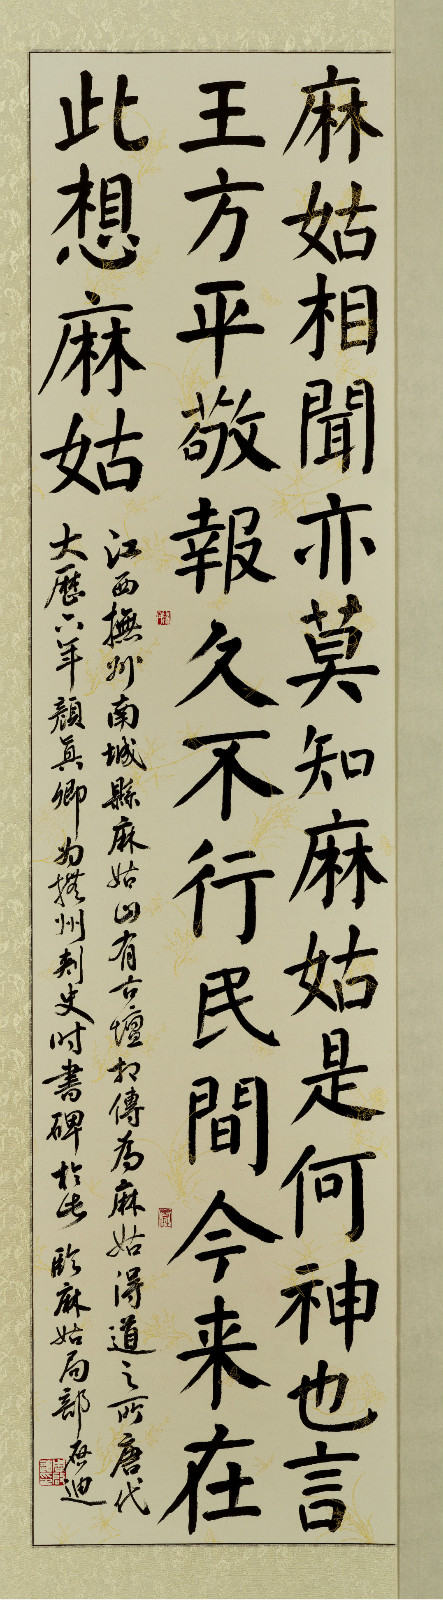 麻姑相聞亦莫知麻姑是何神也言
王方平敬報久不行民間今来在
此想麻姑
江西撫州南城縣麻姑山有古壇相傳為麻姑得道之所唐代
大歷六年顏真卿為撫州刺史時書碑於此 臨麻姑局部 啟迪